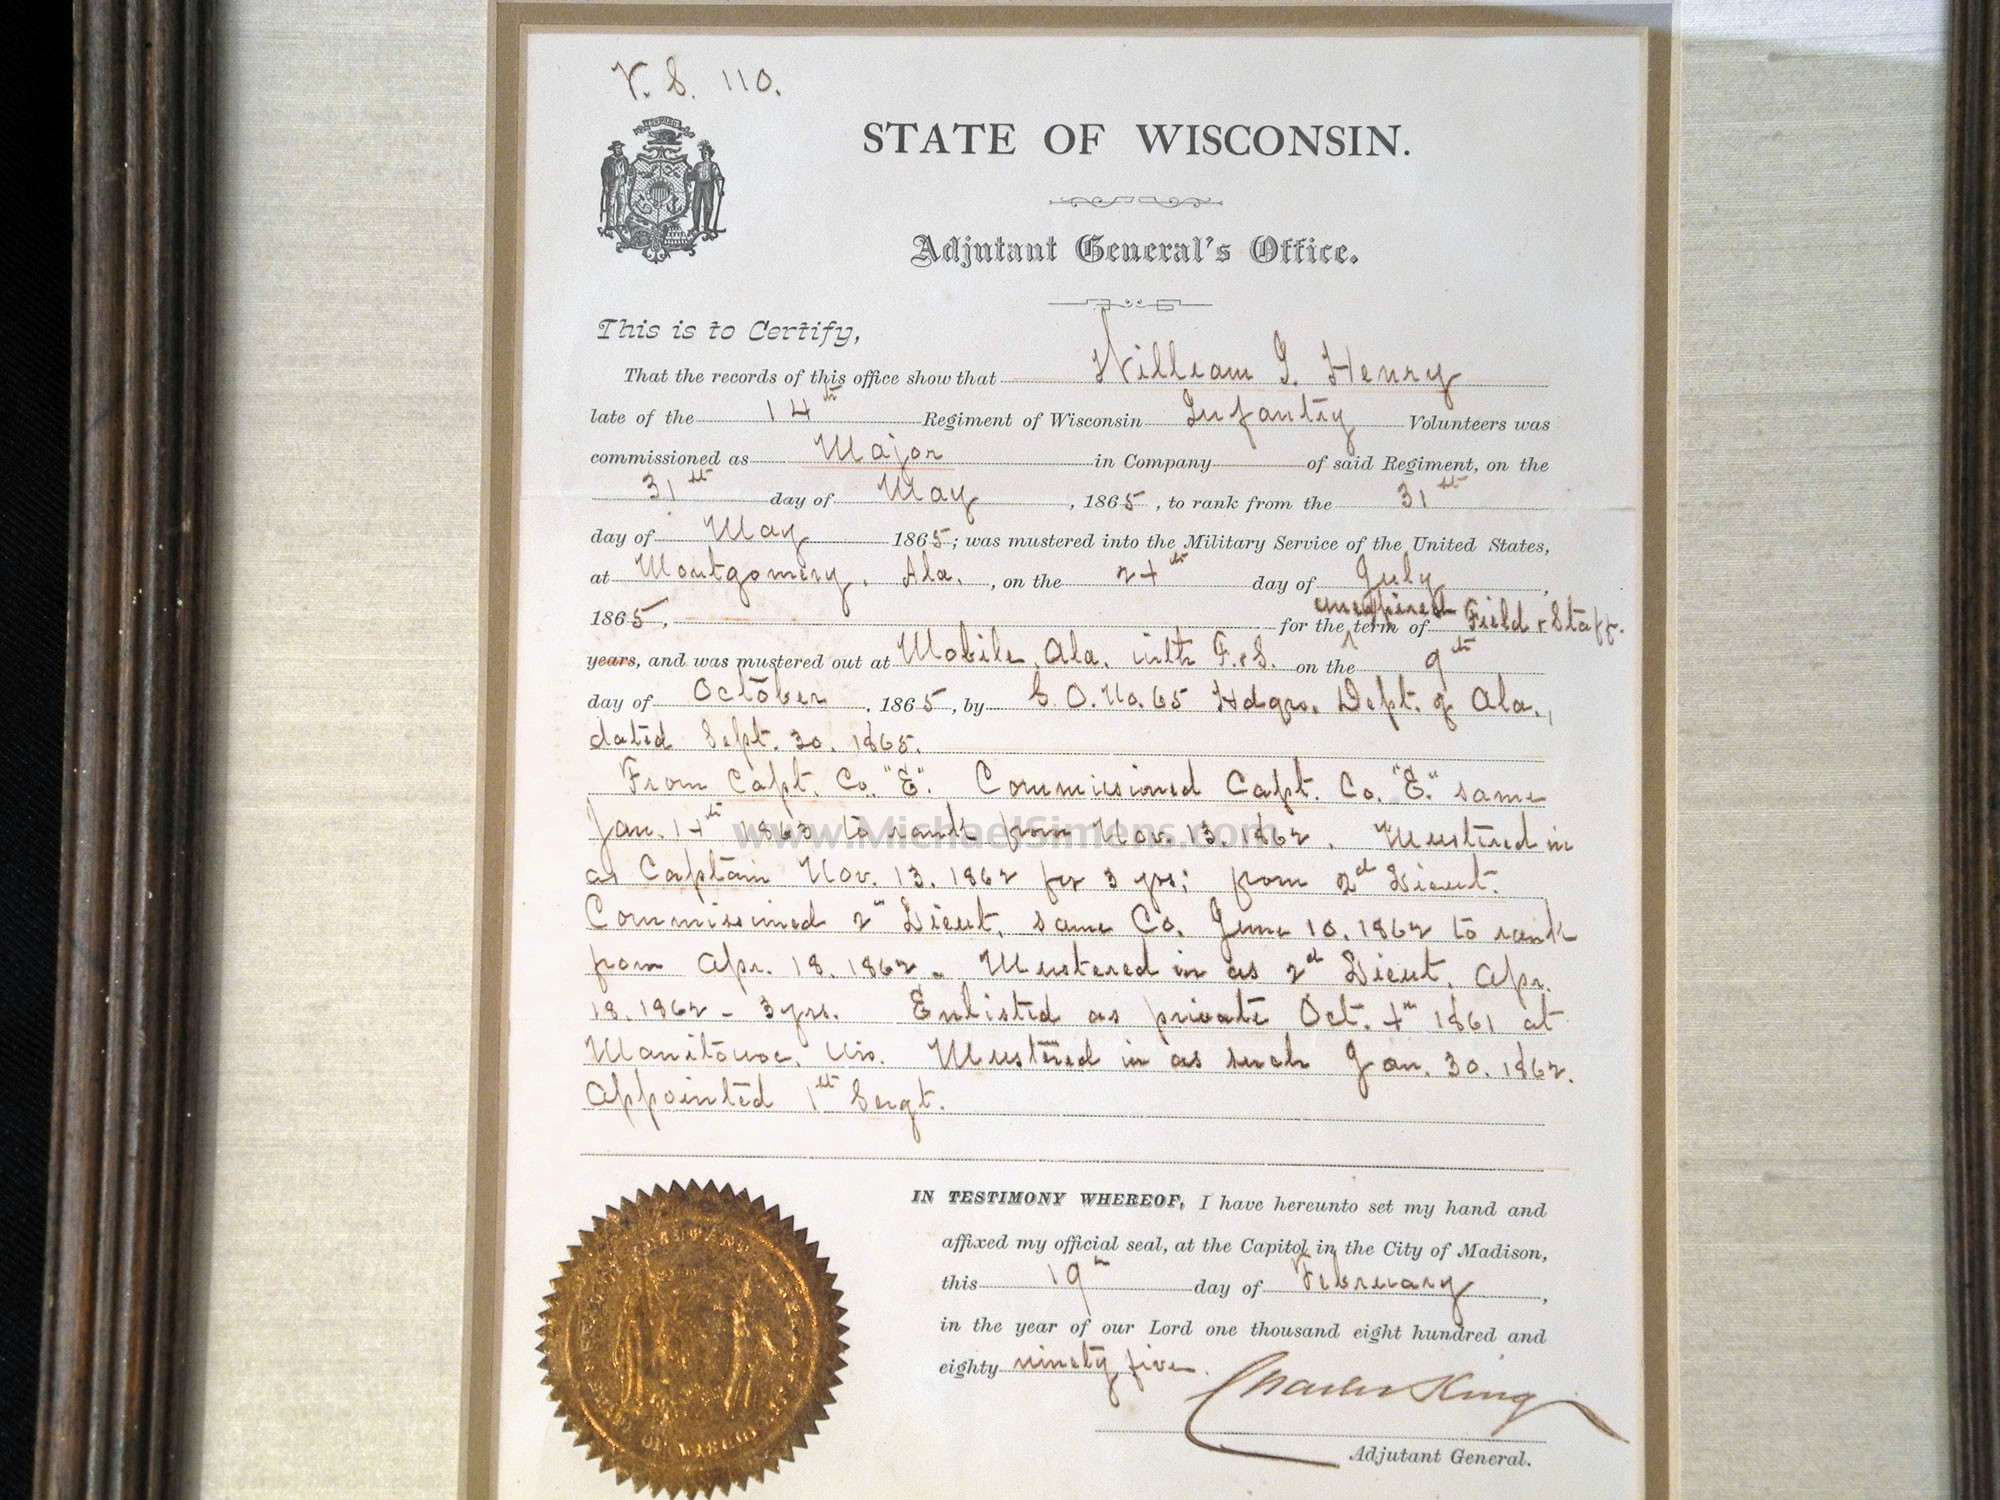 V. S. 110.
STATE OF WISCONSIN.
Adjutant General's Office.
This is to Certify,
That the records of this office show that William I. Henry
late of the 14th Regiment of Wisconsin Infantry Volunteers was
commissioned as Major in Company of said Regiment, on the
31st day of May, 1865, to rank from the 31st
day of May 1865; was mustered into the Military Service of the United States,
at Montgomery, Ala., on the 24th day of July,
1865, for the unexpired term of Field & Staff.
years, and was mustered out at Mobile, Ala. with F. & S. on the 9th
day of October, 1865, by S. O. No. 65 Hdqrs. Dept. of Ala.,
dated Sept. 30. 1865.
From Capt. Co. "E". Commissioned Capt. Co. "E." same
Jan. 14th 1863 to rank from Nov. 13. 1862. Mustered in
as Captain Nov. 13. 1862 for 3 yrs; from 2d Lieut.
Commissioned 2nd Lieut. same Co. June 10. 1862 to rank
from Apr. 18. 1862. Mustered in as 2d Lieut. Apr.
18. 1862 - 3 yrs. Enlisted as private Oct. 4th 1861 at
Manitowoc, Wis. Mustered in as such Jan. 30. 1862.
Appointed 1st Sergt.
www.MichaelSimens.com
IN TESTIMONY WHEREOF, I have hereunto set my hand and
affixed my official seal, at the Capitol in the City of Madison,
this 19th day of February,
in the year of our Lord one thousand eight hundred and
eighty ninety five.
Charles King
Adjutant General.